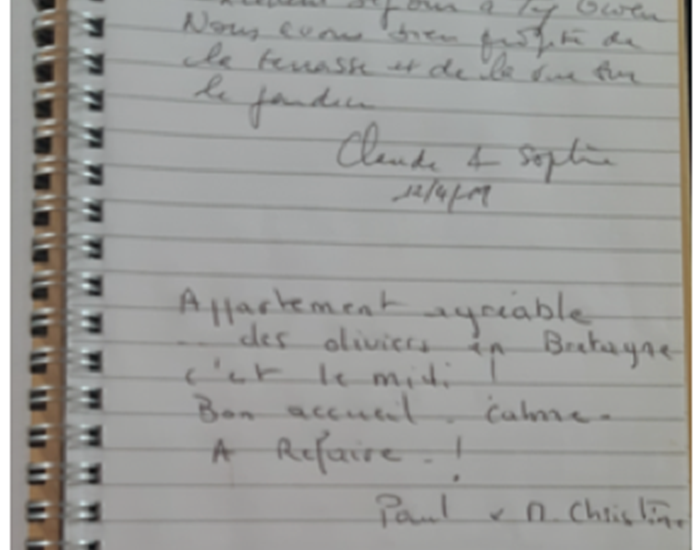 séjour à Ty Gwen
Nous avons bien profité de
la terrasse et de la vue sur
le jardin
Claude & Sophie
12/4/19
Appartement agréable
... des oliviers en Bretagne
c'est le midi !
Bon accueil. calme.
A Refaire. !
Paul & M. Christine